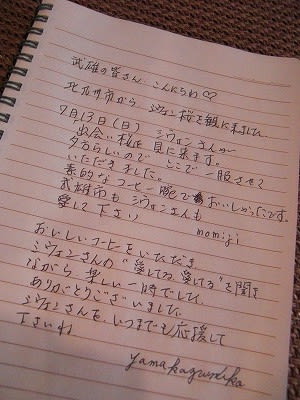 武雄の皆さん、こんにちわ♡
北九州市から シウォン桜を観に来ました。
7月13日(日) シウォンさんが
出会い桜を見に来ます。
夕方らしいので ここで一服させて
いただきました。
素的なコーヒー腕で おいしかったです。
武雄市も シウォンさんも
愛して下さい
momiji
おいしいコーヒーをいただき
シウォンさんの“愛してる愛してる”を聞き
ながら 楽しい一時でした。
ありがとうございました。
シウォンさんを、いつまでも応援して
下さいね